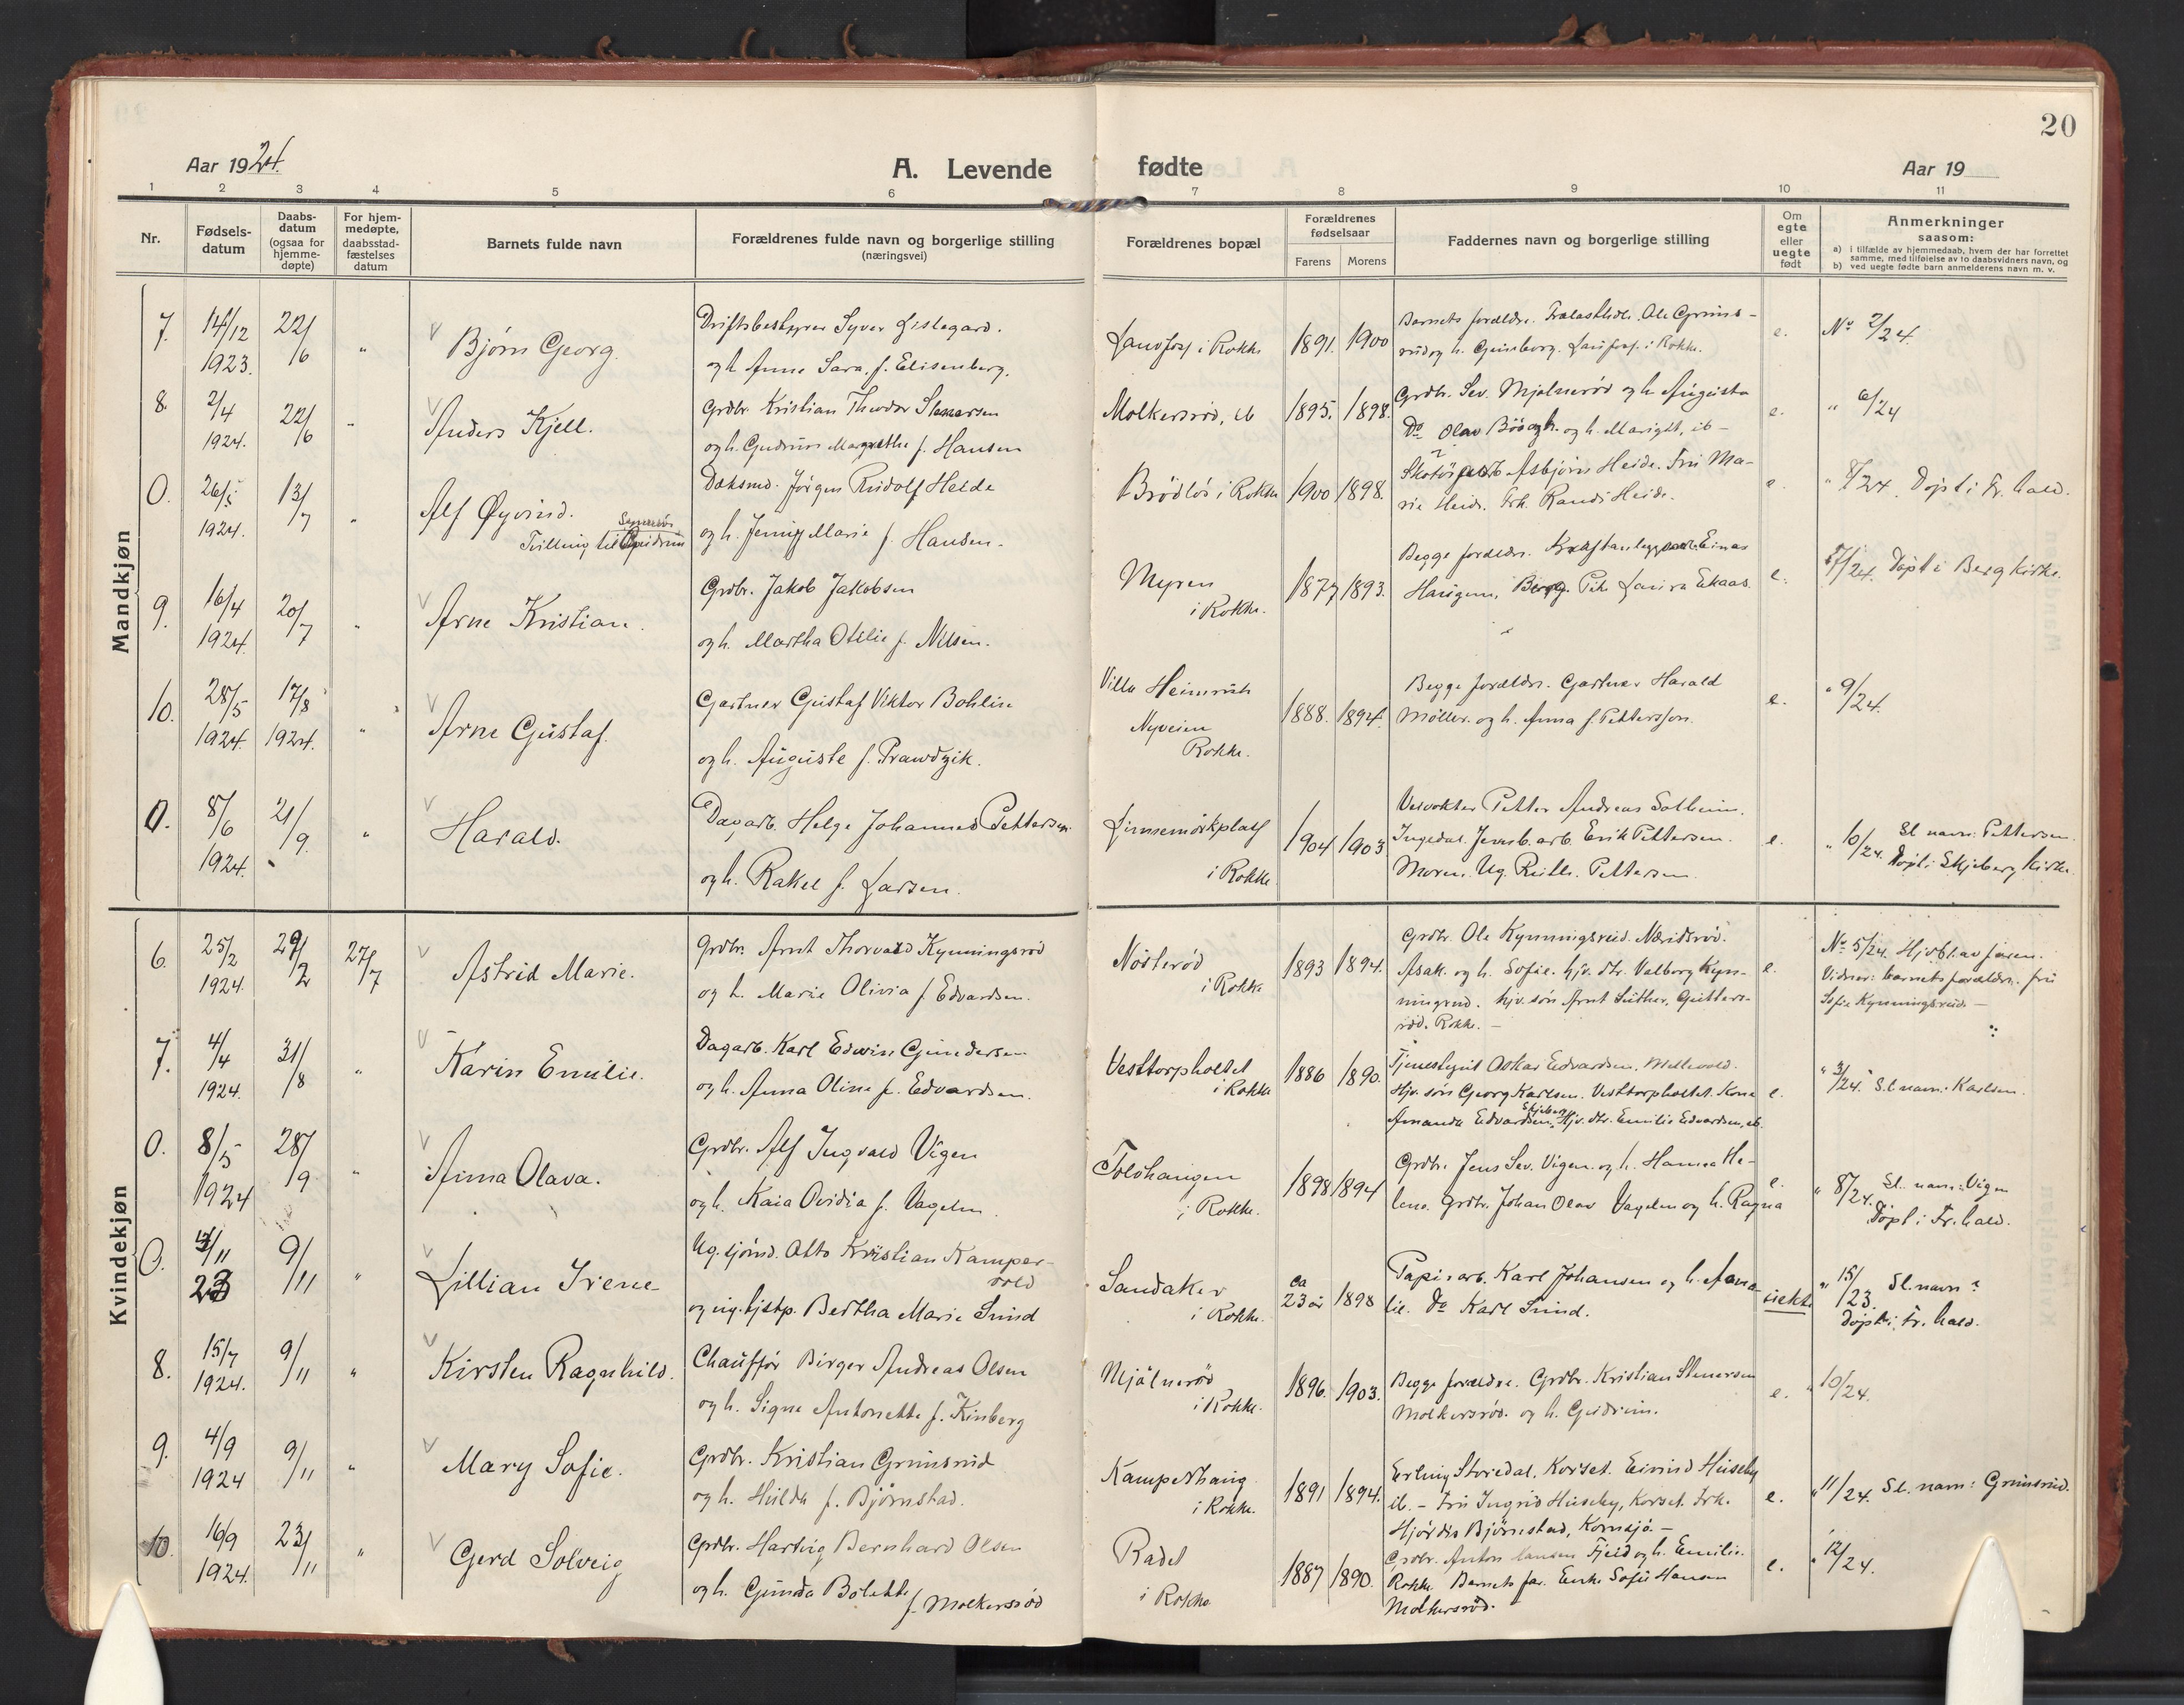 20
Aar 1924.
A. Levende
fødte
Aar 19
1 2 3 4 5 6 7 8 9 10 11
Nr.
Fødsels-
datum
Daabs-
datum
(ogsaa for
hjemme-
døpte)
For hjem-
medøpte,
daabsstad-
fæstelses
datum
Barnets fulde navn
Forældrenes fulde navn og borgerlige stilling
(næringsvei)
Forældrenes bopæl
Forældrenes
fødselsaar
Farens Morens
Faddernes navn og borgerlige stilling
Om
egte
eller
uegte
født
Anmerkninger
saasom:
a) i tilfælde av hjemmedaab, hvem der har forrettet
samme, med tilføielse av to daabsvidners navn, og
b) ved uegte fødte barn anmelderens navn m. v.
Mandkjøn
7. 14/12 1923. 22/6 " Bjørn Georg.
Driftsbestyrer Syver Lislegard.
og h. Anne Sara, f. Elisenberg.
i Rokke 1891. 1900
Barnets forældre. Ole Grims-
rud og h. Gunborg. i Rokke.
e. No 2/24.
8. 2/4 1924. 22/6 " Anders Kjell.
Grdbr. Kristian Theodor Stenersen
og h. Gudrun Margrethe f. Hansen
Molkersrød, ib 1895. 1898.
Grdbr. Sev. Mjølnerød og h. Augusta
Do Olav og h. Marigit, ib -
e. " 6/24
0. 26/5 1924. 13/7 " Alf Øyvind.
Tvilling til Gudrun Synnøve
Jørgen Rudolf Heide
og h. Jenny Marie f. Hansen.
Brödløs i Rokke 1900 1898.
Asbjørn Heide. Fru Ma-
rie Heide. Frk. Randi Heide.
e. " 8/24. Døpt i Fr.hald.
9. 16/4 1924. 20/7 " Arne Kristian.
Grdbr. Jakob Jakobsen
og h. Martha Otilie f. Nilsen.
Myren
i Rokke. 1877 1893.
Begge forældre. Einar
Haugen, Berg. Pike Laura Ekaas.
e. 57/24. Døpt i Berg kirke.
10. 28/5 1924. 17/8 1924. " Arne Gustaf.
Gartner Gustaf Viktor Bohlin
og h. Auguste f. Prawdzik.
Villa Heimruh
Nyveien
Rokke. 1888. 1894.
Begge forældre. Gartner Harald
Møller. og h. Anna f. Pettersson.
e. " 9/24.
0. 8/6 1924. 21/9. " Harald.
Dagarb. Helge Johannes Pettersen.
og h. Rakel f. Larsen.
i Rokke 1904 1903
Veivokter Petter Andreas Solheim.
Ingedal. Jernb.arb. Erik Pettersen.
Moren. Ug. Ruth. Pettersen.
e. " 10/24. Sl. navn: Pettersen.
Døpt i Skjeberg kirke.
Kvindekjøn
6. 25/2 1924. 29/2 27/7 Astrid Marie.
Grdbr. Arnt Thorvald Kynningsrød
og h. Marie Olivia f. Edvardsen.
Nösterød
i Rokke 1893 1894.
Grdbr. Ole Kynningsrud. Næridsrød.
Asak. og h. Sofie. hjv. dtr. Valborg Kyn-
ningsrud. hjv. søn Arnt Luther,
rød. Rokke. -
e. No 5/24. Hjdbt. av faren.
Vidner: barnets forældre. fru
Sofie Kynningsrud -
7. 4/4 1924. 31/8 " Karin Emilie.
Dagarb. Karl Edwin Gundersen
og h. Anna Oline f. Edvardsen.
Vesttorpholtet
i Rokke 1886 1890.
Tjenestegut Oskar Edvardsen.
Hjv. søn Georg Karlsen. Vesttorpholtet. Kone
Amanda Edvardsen, Skjeberg, Hjv. dtr. Emilie Edvardsen, ib.
e. " 3/24. Sl. navn: Karlsen.
0. 8/5 1924 28/9 " Anna Olava.
Grdbr. Alf Ingvald Vigen
og h. Kaia Ovidia f. Vagelen.
Toldhaugen
i Rokke. 1898 1894
Grdbr. Jens Sev. Vigen. og h. Hanna He-
lene. Grdbr. Johan Olav Vagelen og h. Ragna
e. " 8/24. Sl. navn: Vigen
Døpt i Fr.hald.
0. 4/11 23 9/11 " Lillian Irene
Ug. sjømd. Otto Kristian Kamper-
vold
og ug. tjstp. Bertha Marie Lund
Sandaker
i Rokke. ca 23 år 1898
Papirarb. Karl Johansen og h. Ama-
lie. Do Karl Lund.
uekte " 15/23. Sl. navn?
Døpt i Fr.hald.
8. 15/7 1924. 9/11 " Kirsten Ragnhild.
Chauffør Birger Andreas Olsen
og h. Signe Antonette f. Kinberg
Mjølnerød
i Rokke. 1896. 1903.
Begge forældre. Grdbr. Kristian Stenersen
Molkersrød. og h. Gudrun.
e. " 10/24.
9. 4/9 1924 9/11 " Mary Sofie.
Grdbr. Kristian Grimsrud
og h. Hulda f. Bjørnstad.
Kamperhaug
i Rokke. 1891 1894.
Erling Storedal, Korset. Eivind Huseby
ib. - Fru Ingrid Huseby, Korset. Frk.
Hjørdis Bjørnstad, Kornsjø. -
e. " 11/24. Sl. navn: Grimsrud.
10. 16/9 1924. 23/11 " Gerd Solveig
Grdbr. Hartvig Bernhard Olsen
og h. Gunda Bolette f. Molkersrød
Radet
i Rokke 1887 1890.
Grdbr. Anton Hansen Fjeld og h. Emilie.
Rokke. Barnets far. Enke Sofie Hansen
Molkersrød.
e. " 12/24.